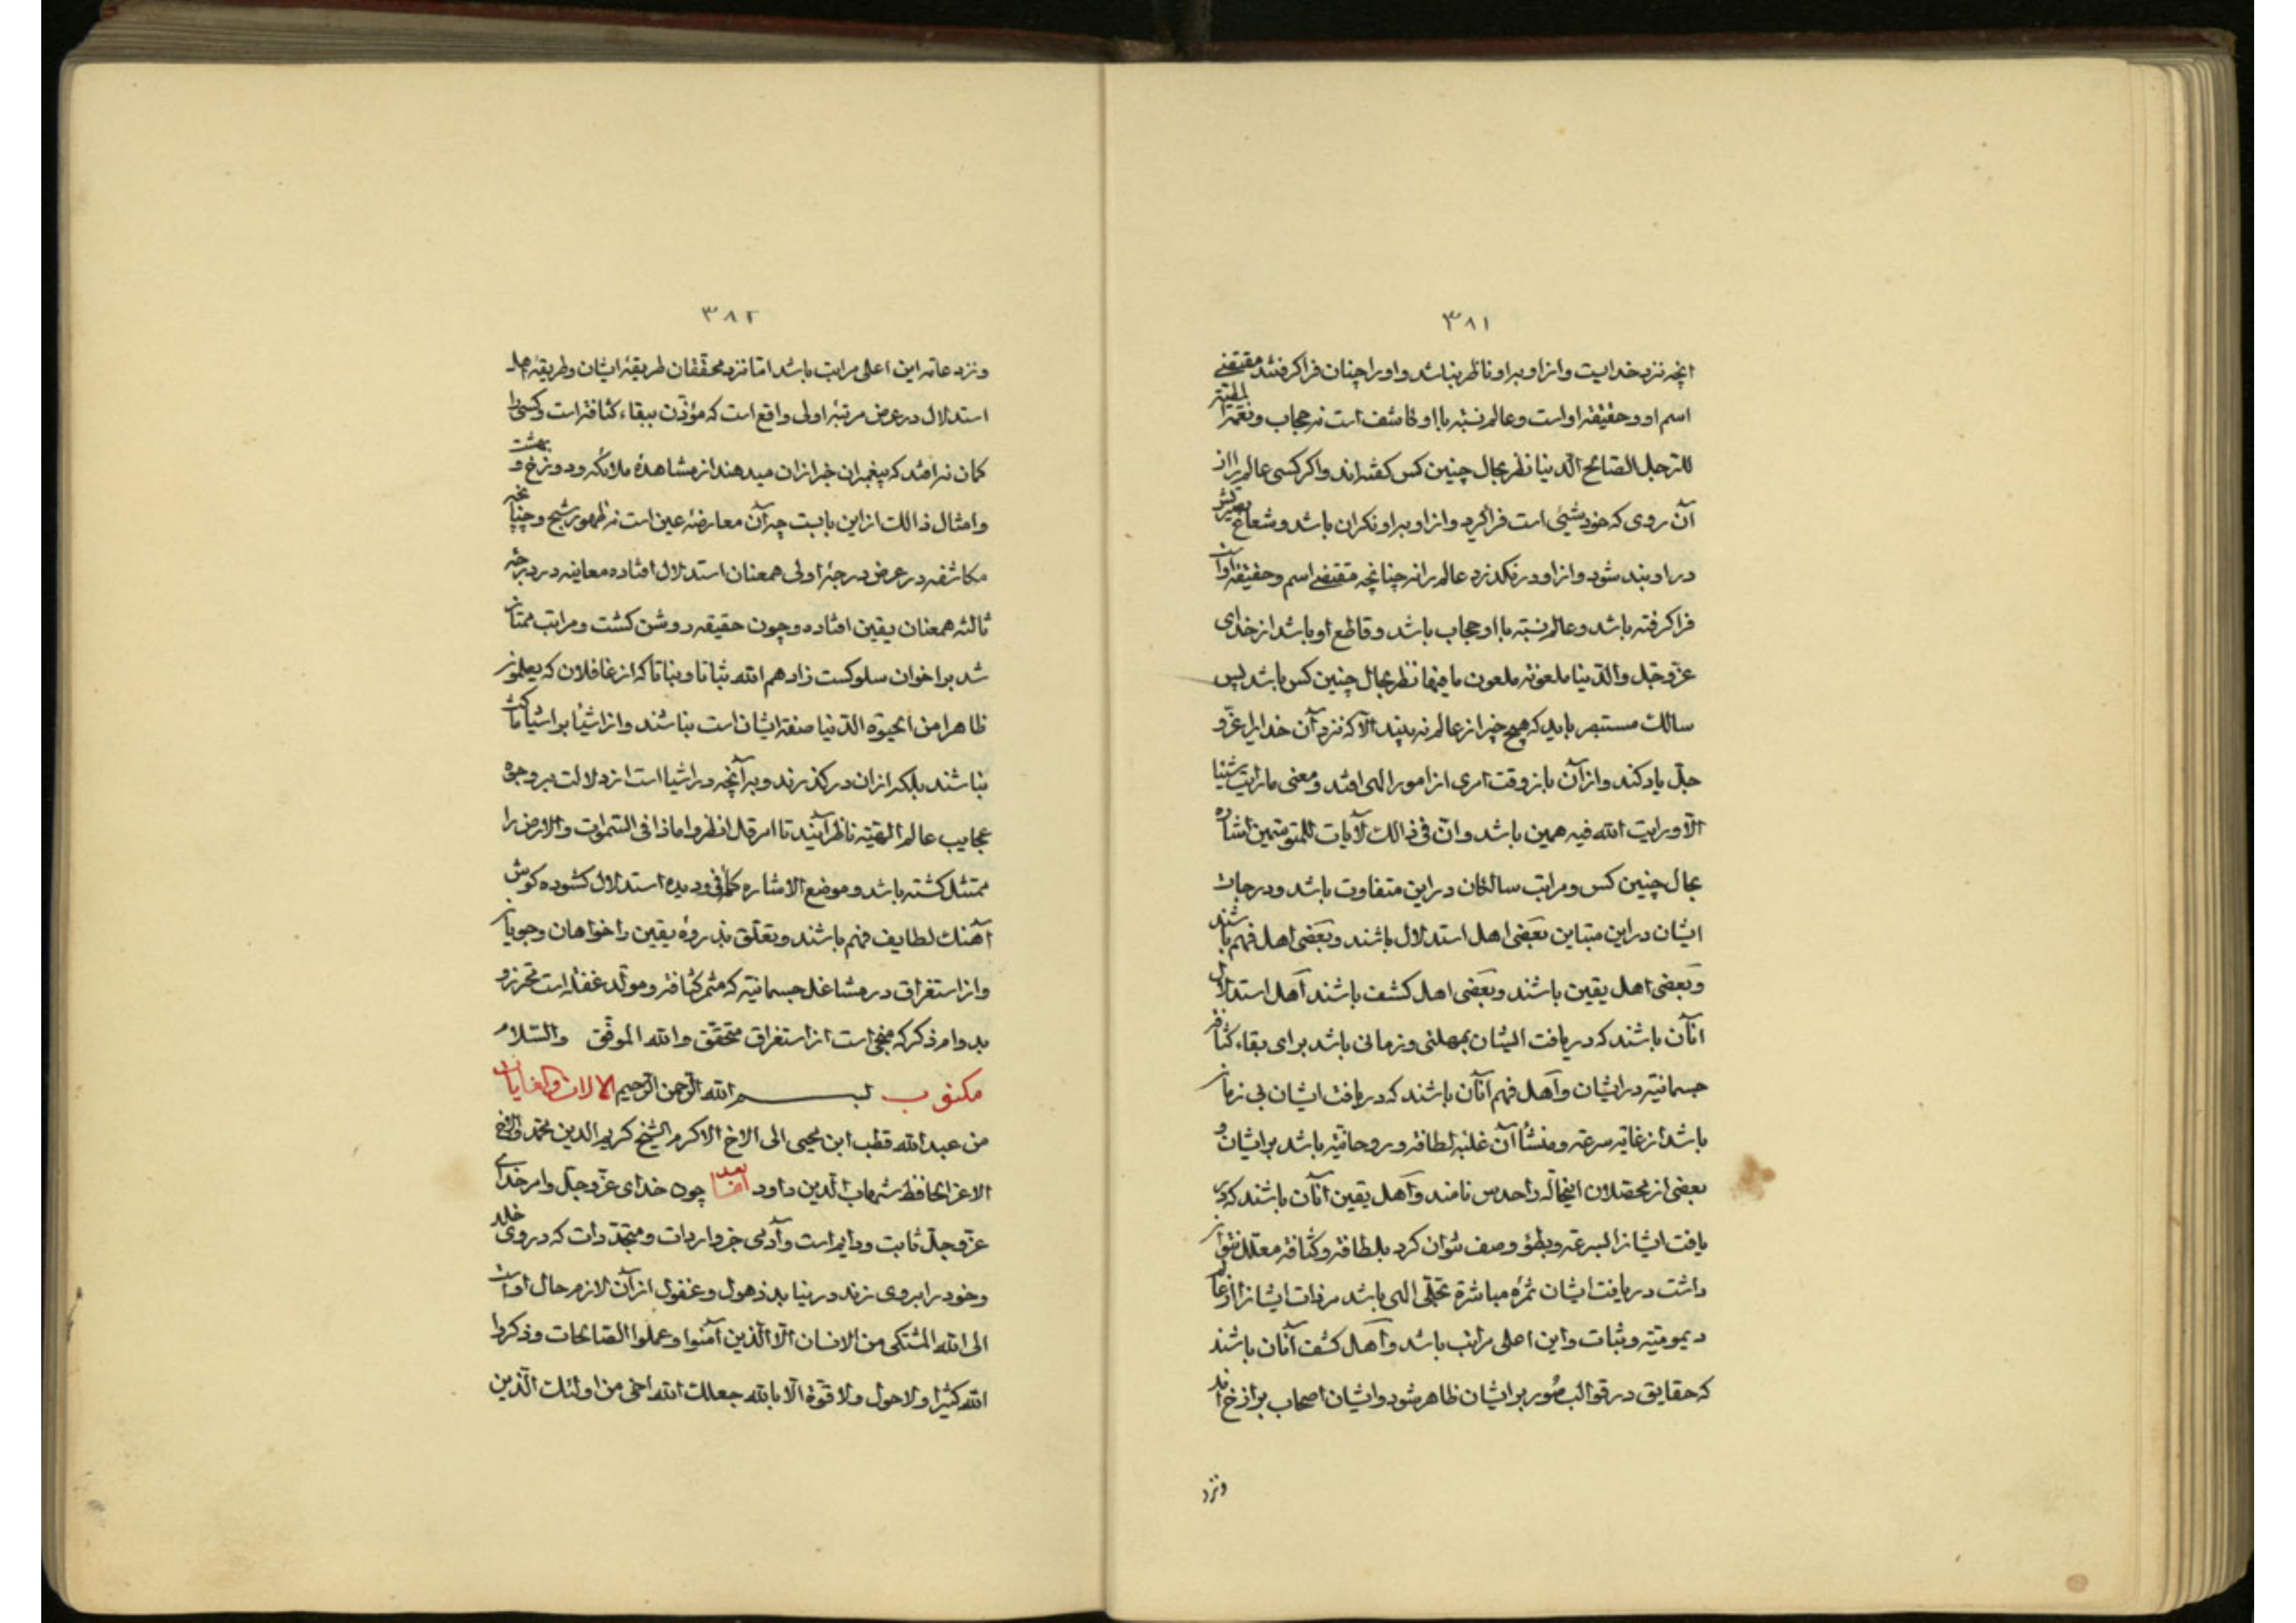 ۳۸۱
انچه نزد خدایست و از او براو ناظر نباشد و او را چنان فرا گرفتند مقتضی
اسم او و حقیقة او است و عالم نسبة با او کاشف است نه حجاب و نعمة المطیة
للرجل الصالح الدنیا نظر بحال چنین کس گفته‌اند و اگر کسی عالم را از
آن روی که خود شیئی است فراگیرد و از او براو نکران باشد و شعاع بصیرتش
در او بند شود و از او در نگذرد عالم را نه چنانچه مقتضی اسم و حقیقة اوست
فرا گرفته باشد و عالم نسبة با او حجاب باشد و قاطع او باشد از خدای
عزّ و جلّ و الدنیا ملعونه ملعون ما فیها نظر بحال چنین کس باشد پس
سالک مستبصر باید که هیچ چیز از عالم نه بیند الّا که نزد آن خدایرا عزّ و
جلّ یاد کند و از آن باز وقت امری از امور الهی افتد و معنی ما رایت شیئا
الّا و رایت الله فیه همین باشد و انّ فی ذالک لآیات للمتوسّمین اشاره
بحال چنین کس و مراتب سالکان در این متفاوت باشد و درجات
ایشان در این متباین بعضی اهل استدلال باشند و بعضی اهل فهم باشند
و بعضی اهل یقین باشند و بعضی اهل کشف باشند اهل استدلال
انآن باشند که دریافت ایشان بمهلتی و زمانی باشد برای بقاء کثافة
جسمانیة در ایشان و اهل فهم انآن باشند که دریافت ایشان بی زمان
باشد از غایة سرعة و منشأ آن غلبه لطافة و روحانیّة باشد بر ایشان و
بعضی از محصلان اینحاله را حدس نامند و اهل یقین انآن باشند که در
یافت ایشانرا بسرعة و بطؤ وصف نتوان کرد بلطافة و کثافة معلّل نتوان
داشت دریافت ایشان ثمره مباشرة تجلّی الهی باشد مر ذات ایشانرا از
دیمومیّة و ثبات و این اعلی مراتب باشد و اهل کشف آنان باشند
که حقایق در قوالب صُور بر ایشان ظاهر شود و ایشان اصحاب برازخ اند
ونزد
۳۸۲
و نزد عامّه این اعلی مراتب باشد امّا نزد محقّقان طریقۀ ایشان و طریقۀ اهل
استدلال در عرض مرتبۀ اولی واقع است که مؤذن ببقاء کثافة است و کسی را
گمان نه افتد که پیغمبران خبر از ان میدهند از مشاهدۀ ملائکه و دوزخ و بهشت
و امثال ذالک از این بابست چه آن معارضۀ عین است نه ظهور شبح و چنانچه
مکاشفه در عرض درجۀ اولی همعنان استدلال افتاده معاینه در درجۀ
ثالثه همعنان یقین افتاده و چون حقیقه روشن گشت و مراتب ممتاز
شد بر اخوان سلوکست زادهم الله ثباتا و بناتا که از غافلان که یعلمون
ظاهرا من الحیوة الدنیا صفة ایشان است نباشند و از اشیا بر اشیا ماکث
نباشند بلکه از ان در گذرند و بر آنچه در اشیا است از دلالت بر وجوه
عجایب عالم الهیّة ناظر آیند تا امر قل انظروا ماذا فی السّموات و الارض را
ممتثل گشته باشد و موضع الاشاره کما فی و دیده استدلال گشوده گوش
آهنک لطایف فهم باشند و تعلّق بذروۀ یقین را خواهان و جویان
و از استغراق در مشاغل جسمانیّه که مثمر کثافة و مولّد غفلة است محرز و
بدوام ذکر که منجی است از استغراق متحقّق و الله الموفّق والسّلام
مکتوب بسم الله الرّحمن الرّحیم
من عبد الله قطب ابن یحیی الی الاخ الاکرم الشیخ کریم الدین محمّد و الاخ
الاعز الحافظ شهاب الدین داود امّا بعد چون خدای عزّ و جلّ و امر خدای
عزّ و جلّ ثابت و دایم است و آدمی جز واردات و متجدّدات که در وی خلد
و خود را بر وی زند در نیابد ذهول و غفول از آن لازم حال اوست
الی الله المشتکی من الانسان الّا الّذین آمنوا و عملوا الصّالحات و ذکروا
الله کثیرا و لا حول و لا قوّة الّا بالله جعلک الله اخی من اولئک الّذین